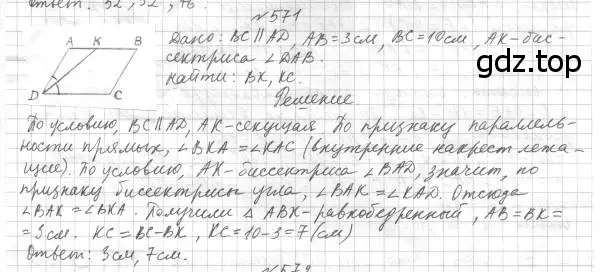 Ответ: 52, 52, 76.
№571
A K B
D C
Дано: BC∥AD, AB=3см, BC=10см, AK-бис-
сектриса ∠DAB.
Найти: BK, KC.
gdz.top
Решение
По условию, BC∥AD, AK-секущая По признаку параллель-
ности прямых, ∠BKA=∠KAC (внутренние накрест лежа-
щие). По условию, AK-биссектриса ∠BAD, значит, по
признаку биссектрисы угла, ∠BAK=∠KAD. Отсюда
∠BAK=∠BKA. Получили △ ABK-равнобедренный, AB=BK=
=3см. KC=BC-BK, KC=10-3=7(см)
Ответ: 3см, 7см.
№572